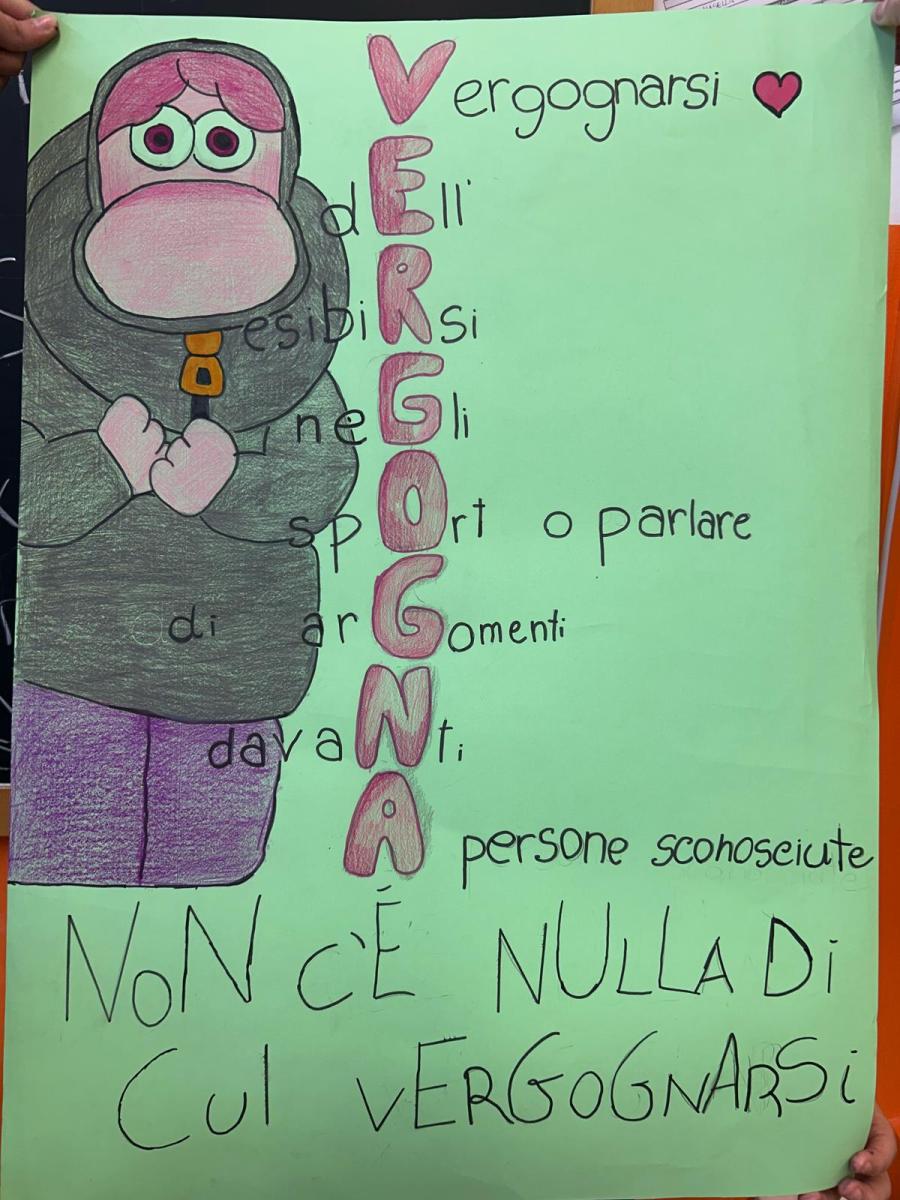 Vergognarsi
dEll'
esibiRsi
neGli
spOrt o parlare
di arGomenti
davaNti
A persone sconosciute
NoN C'È NULLA Di
CUI vERGOGNARSi